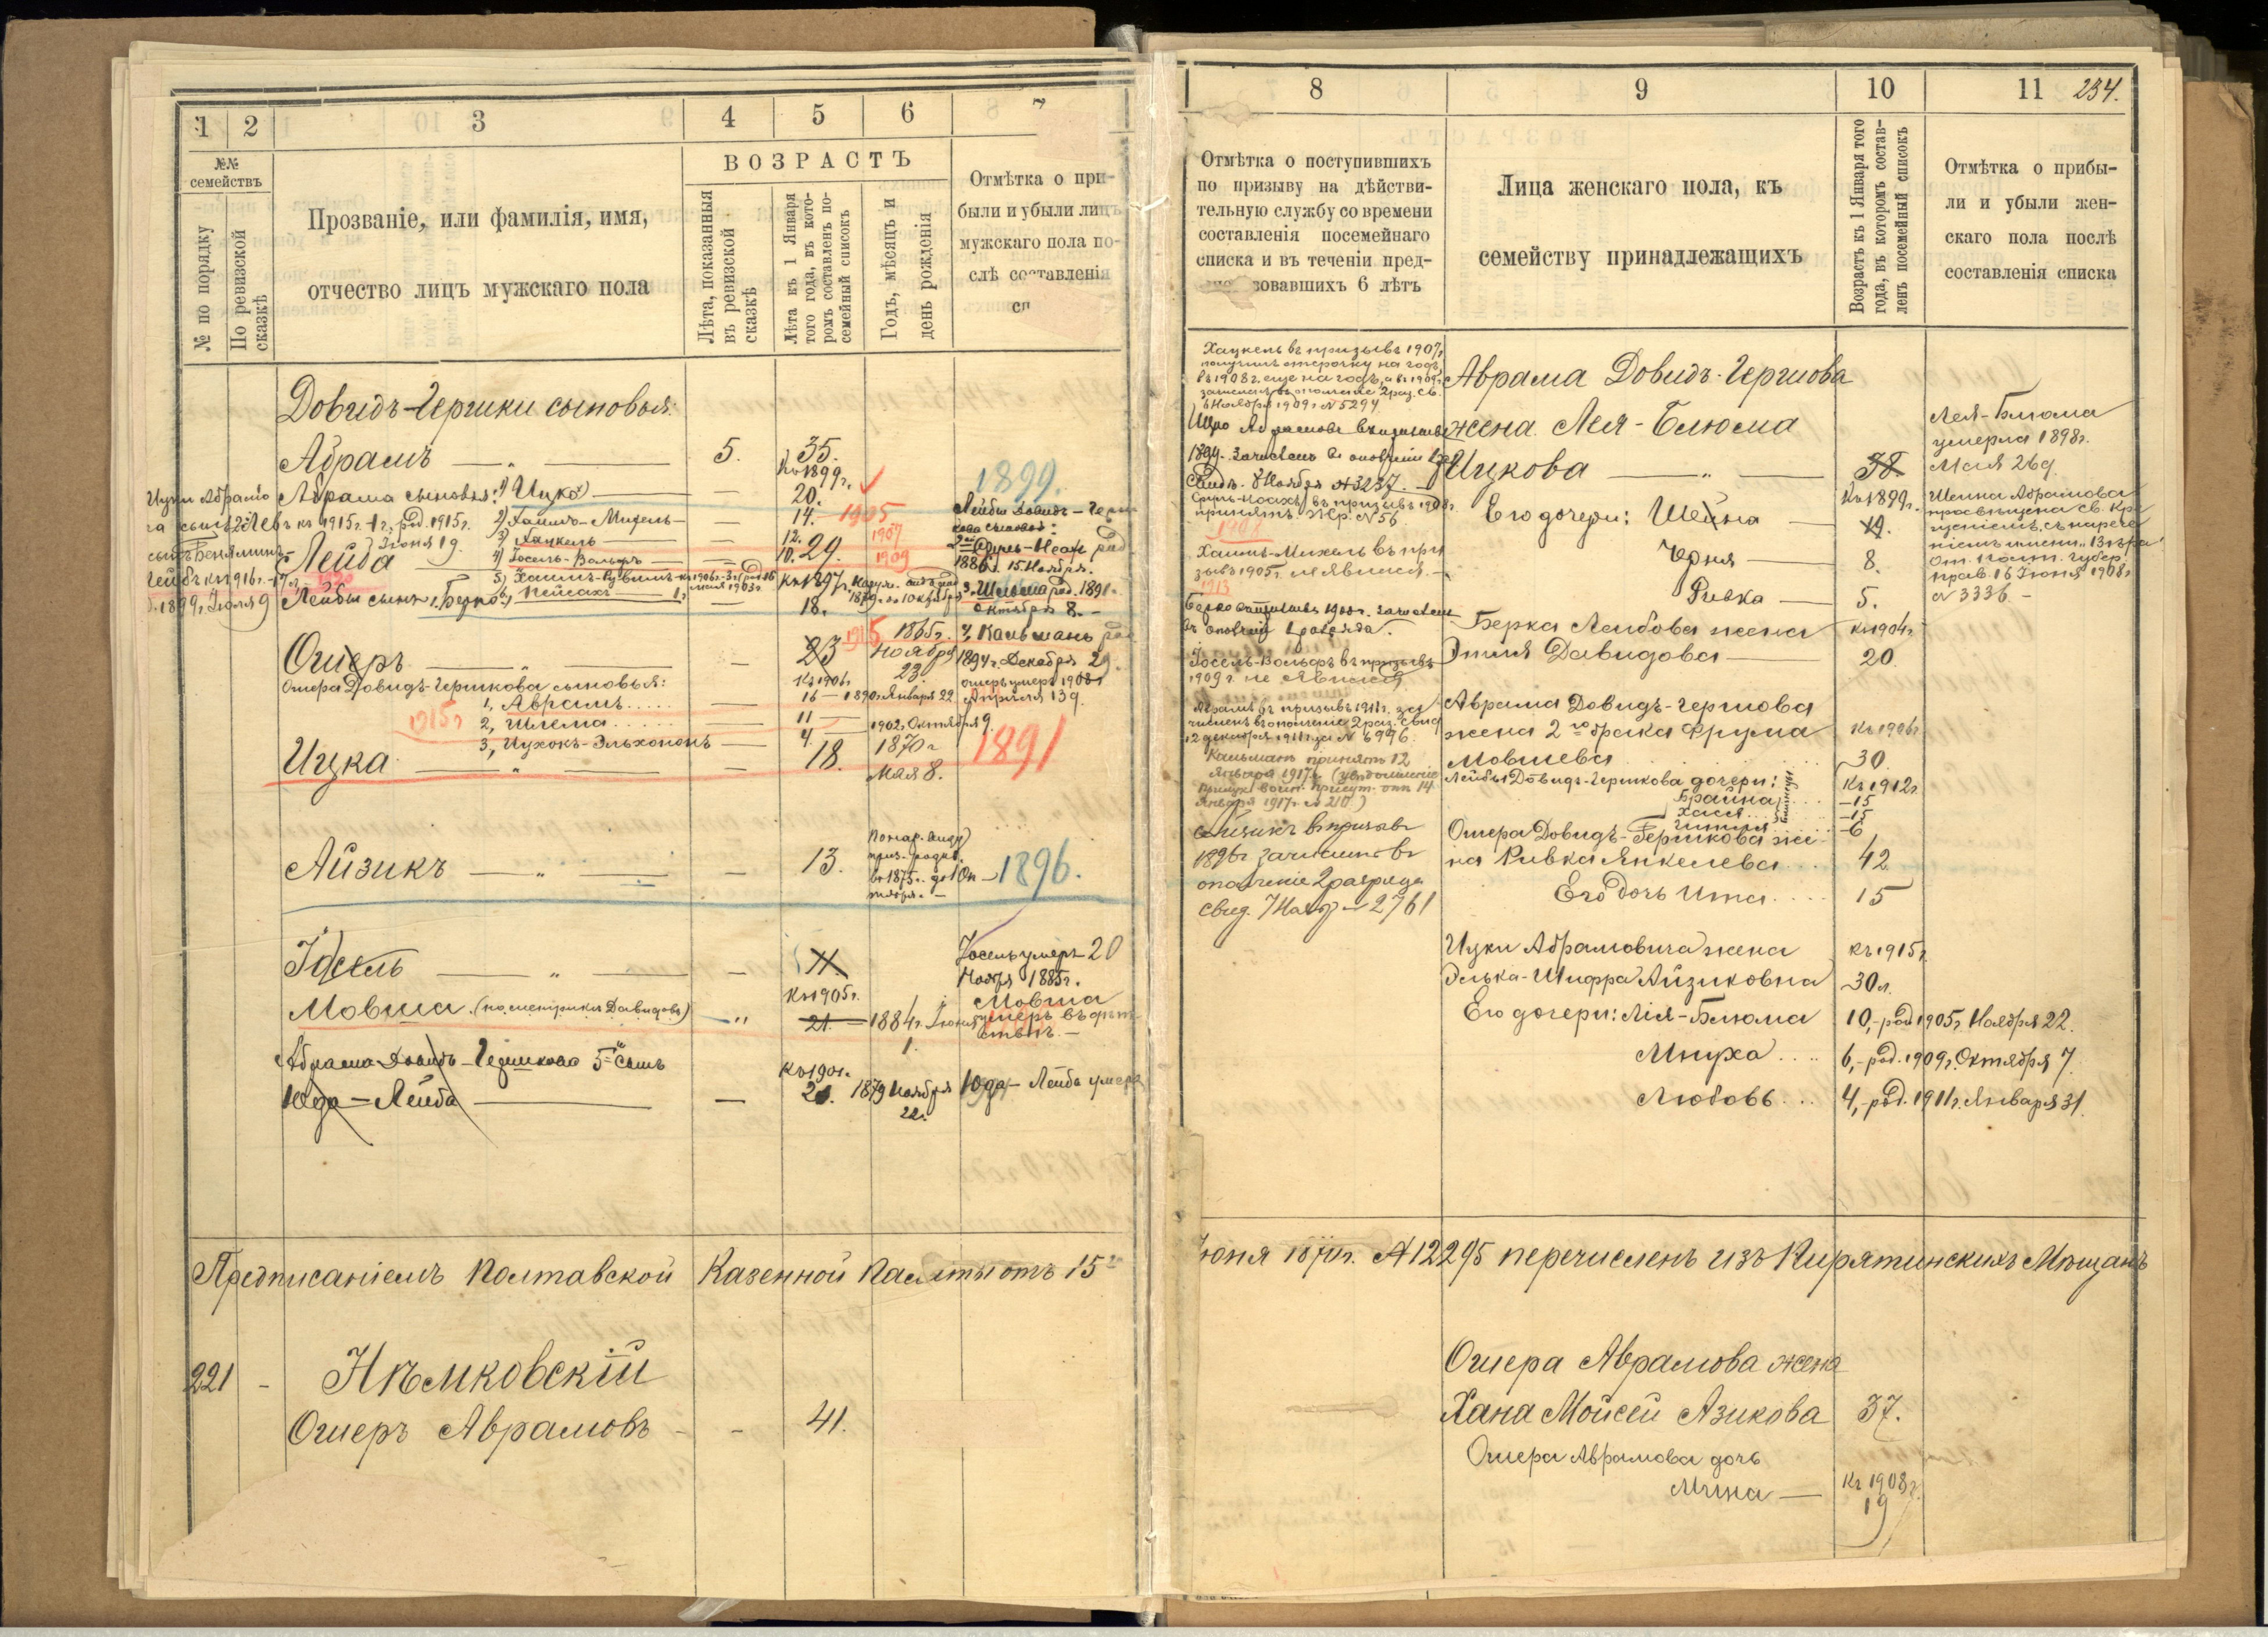 1 2 3 4 5 6 7
№№ семействъ
№ по порядку
По ревизской сказкѣ
Прозваніе, или фамилія, имя,
отчество лицъ мужскаго пола
ВОЗРАСТЪ
Лѣта, показанныя
въ ревизской
сказкѣ
Лѣта къ 1 Января
того года, въ кото-
ромъ составленъ по-
семейный списокъ
Годъ, мѣсяцъ и
день рожденія
Отмѣтка о при-
были и убыли лицъ
мужскаго пола по-
слѣ составленія
сп
Довидъ-Гершки сыновья:
Абрамъ — „ — 5. 35.
Къ 1899 г.
1899.
Абрама сыновья: 1) Ицко — 20.
2) Хаимъ-Михель — 14. 1905
3) Хацкель — 12. 1907
4) Іосель-Вольфъ — 10. 1909
Ицки Абрамо
Лейба 29.
5) Хаимъ-
6) Пейсахъ
Лейбы Довидъ-Герш
кова сыновья:
2й Сруль-Ноахъ род.
1886 г. 15 Ноября.
3, Шльома род. 1891 г.
Октября 8. —
4, Кальманъ род
1894 г. Декабря 29.
Лейбы сынъ: 1. Берко — Къ 1897 г.
18.
Ошеръ — „ — 23 1865 г.
Ноября
23.
Ошера Довидъ-Гершкова сыновья:
Къ 1906 г.
Ошеръ умеръ 1908 г.
Апрѣля 13 д.
1, Абрамъ..... — 16 — 1890 г. Января 22
2, Шлема..... — 11 —
3, Ицхокъ-Эльхононъ — 4. 1902 г. Октября 9.
1915 г
Ицка — „ — 18. 1870 г
Мая 8.
1891
Айзикъ — „ — — 13.
въ 1875 г. до 1 Ок-
тября. —
1896.
Іосель — „ — — 11.
Іосель умеръ 20
Ноябр 1885 г.
Къ 1905 г.
Мовша (по метрикѣ Давидовъ) — „ 21. — 1884 г. Іюня
1.
Мовша
умеръ въ дѣт-
ствѣ. —
Абрама Довидъ-Гершкова 5й сынъ
Къ 1901 г.
Юда-Лейба — — 21. 1879 Ноября
22.
Юда-Лейба умеръ
Предписаніемъ Полтавской Казенной Палаты отъ 15го
221 — Нѣмковскій
Ошеръ Аврамовъ — — 41.
8 9 10 11 234.
Отмѣтка о поступившихъ
по призыву на дѣйстви-
тельную службу со времени
составленія посемейнаго
списка и въ теченіи пред-
зовавшихъ 6 лѣтъ
Лица женскаго пола, къ
семейству принадлежащихъ
Возрастъ къ 1 Января того
года, въ которомъ состав-
ленъ посемейный списокъ
Отмѣтка о прибы-
ли и убыли жен-
скаго пола послѣ
составленія списка
Хацкель въ призывъ 1907 г.
получилъ отсрочку на годъ,
въ 1908 г. еще на годъ, а въ 1909 г.
зачисленъ въ ополченіе 2 раз. св.
6 Ноября 1909 г. № 5294
Ицко Абрамовъ въ призывъ
1899. Зачисленъ въ ополченіе
Свид. 8 Ноября № 3237. —
Сруль-Ноахъ въ призывъ 1908 г.
принятъ. Жер. № 56
1908
Хаимъ-Михель въ при
зывъ 1905 г. не явился. —
1913
Берко въ призывъ 1900 г. зачислен
въ ополченіе 1 разряда.
Іосель-Вольфъ въ призывъ
1909 г. не явился
Абрамъ въ призывъ 1911 г. за
численъ въ ополченіе 2 раз. свид
12 декабря 1911 г. за № 6996.
Кальманъ принятъ 12
Января 1917 г. (увѣдомленіе
воин. присут. отъ 14
Января 1917 г. № 210.)
Айзикъ въ призывъ
1896 г зачисленъ въ
ополченіе 2 разряда
свид. 7 Нояб — 2761
Аврама Довидъ-Гершова
жена Лея-Блюма
Ицкова — „ — 38.
Лея-Блюма
умерла 1898 г.
Мая 26 д.
Къ 1899 г.
Его дочери: Шейна — 19.
Чоня — 8.
Ривка — 5.
Шейна Абрамова
просвѣщена Св. Кре
щеніемъ, съ нарече
ніемъ имени „Вѣра“
От. Полт. Губер.
прав. 16 Іюня 1908 г.
№ 3336. —
Берка Лейбова жена Къ 1904 г.
Этля Давидова — 20.
Аврама Довидъ-Гершова
жена 2го брака Фрума Къ 1906 г.
Мовшева 30.
Лейбы Довидъ-Гершкова дочери: Къ 1912 г.
Брайна — 15
Хася — 15
— 6
Ошера Довидъ-Гершкова же-
на Ривка Янкелева.... 42.
Его дочь Ита.... 15
Ицки Абрамовича жена къ 1915 г.
Элька-Шифра Айзиковна 30 л.
Его дочери: Лія-Блюма 10, род. 1905 г. Ноября 22.
Мнуха.... 6, род. 1909 г. Октября 7.
Любовь... 4, род. 1911 г. Января 31.
Іюня 1870 г. № 12295 перечисленъ изъ Пирятинскихъ Мѣщанъ
Ошера Аврамова жена
Хана Мойсей Азикова 37.
Ошера Аврамова дочь
Мина — Къ 1908 г.
19